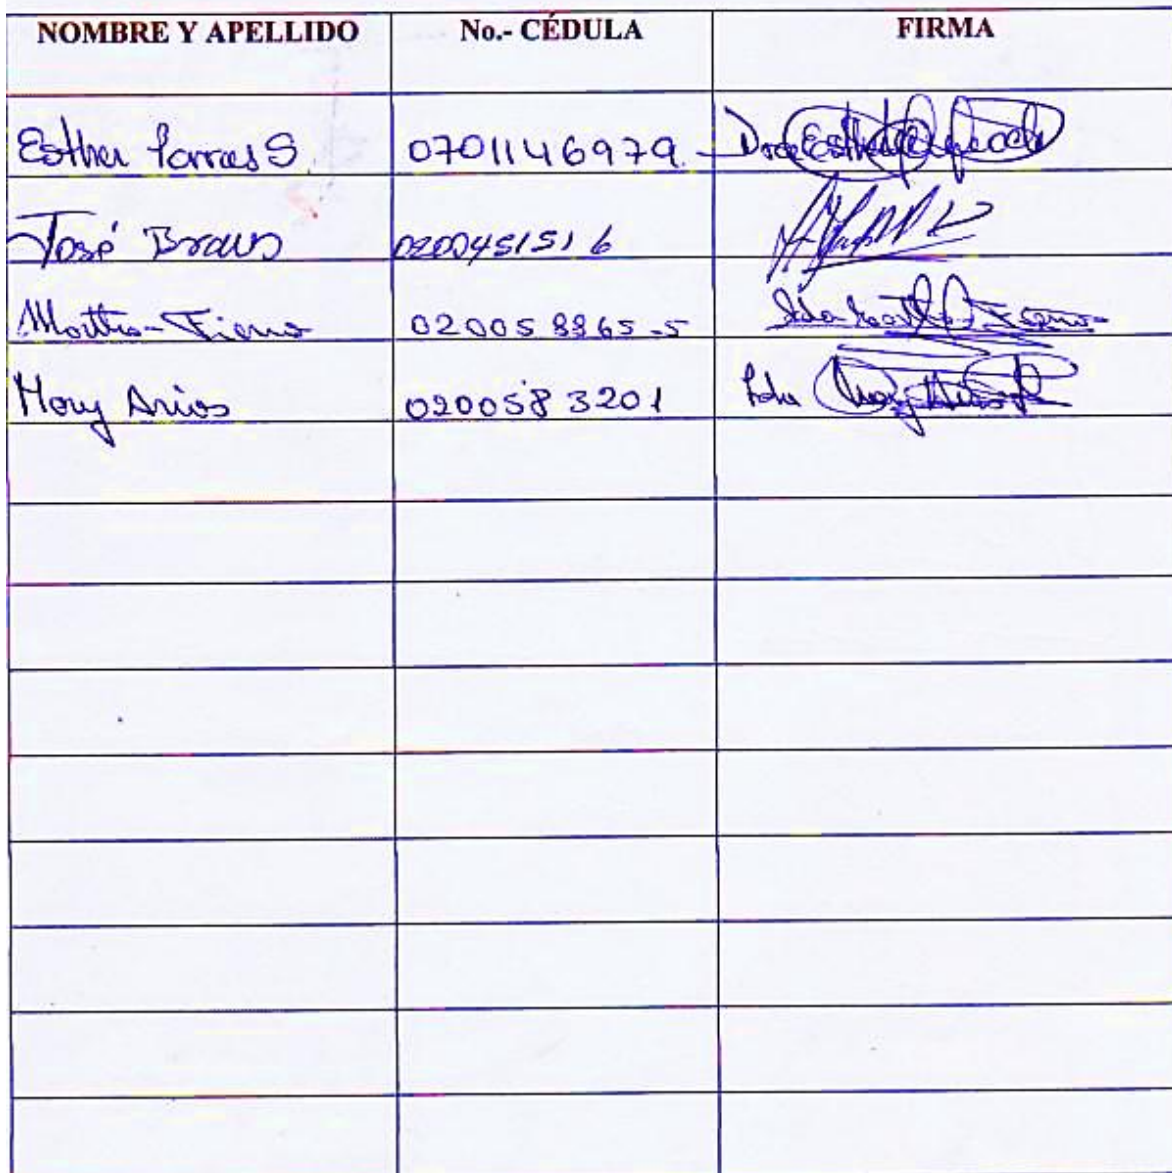 NOMBRE Y APELLIDO No.- CÉDULA FIRMA
Esther Porras S 0701146979
José Bravo 0200451516
Martha Fierro 020058865-5
Mary Arias 0200583201 Lcda